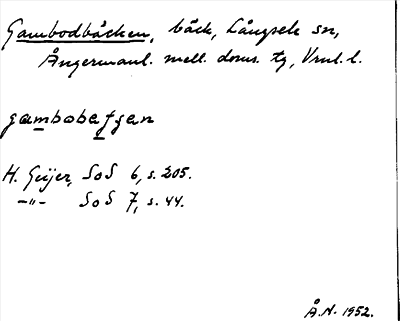 Gambodbäcken, bäck, Långsele sn,
Ångermanl. mell. doms. tg, Vnul. l.
gambobefgen
H. Geijer, SoS 6, s. 205.
-"- SoS 7, s. 44.
Å.N. 1952.